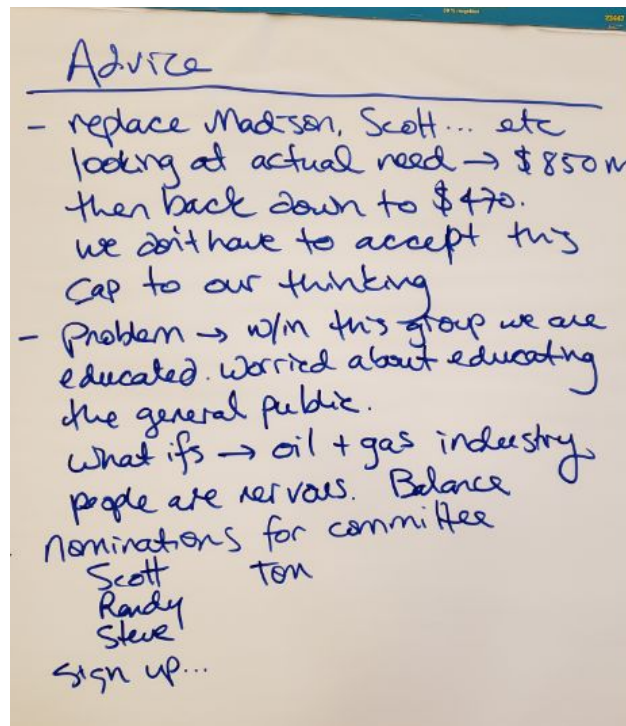 Advice
- replace Madison, Scott... etc
looking at actual need → $850M
then back down to $470.
we don't have to accept this
cap to our thinking
- Problem → w/in this group we are
educated. Worried about educating
the general public.
What ifs → oil + gas industry,
people are nervous. Balance
nominations for committee
Scott Tom
Randy
Steve
sign up...